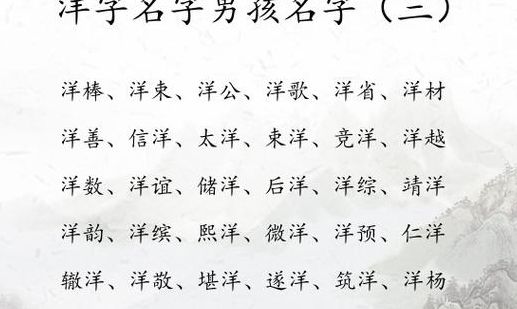 洋字名字男孩名字（三）
洋棒、洋束、洋公、洋歌、洋省、洋材
洋善、信洋、太洋、束洋、竞洋、洋越
洋数、洋谊、储洋、后洋、洋综、靖洋
洋韵、洋缤、熙洋、微洋、洋预、仁洋
辙洋、洋敬、堪洋、遂洋、筑洋、洋杨